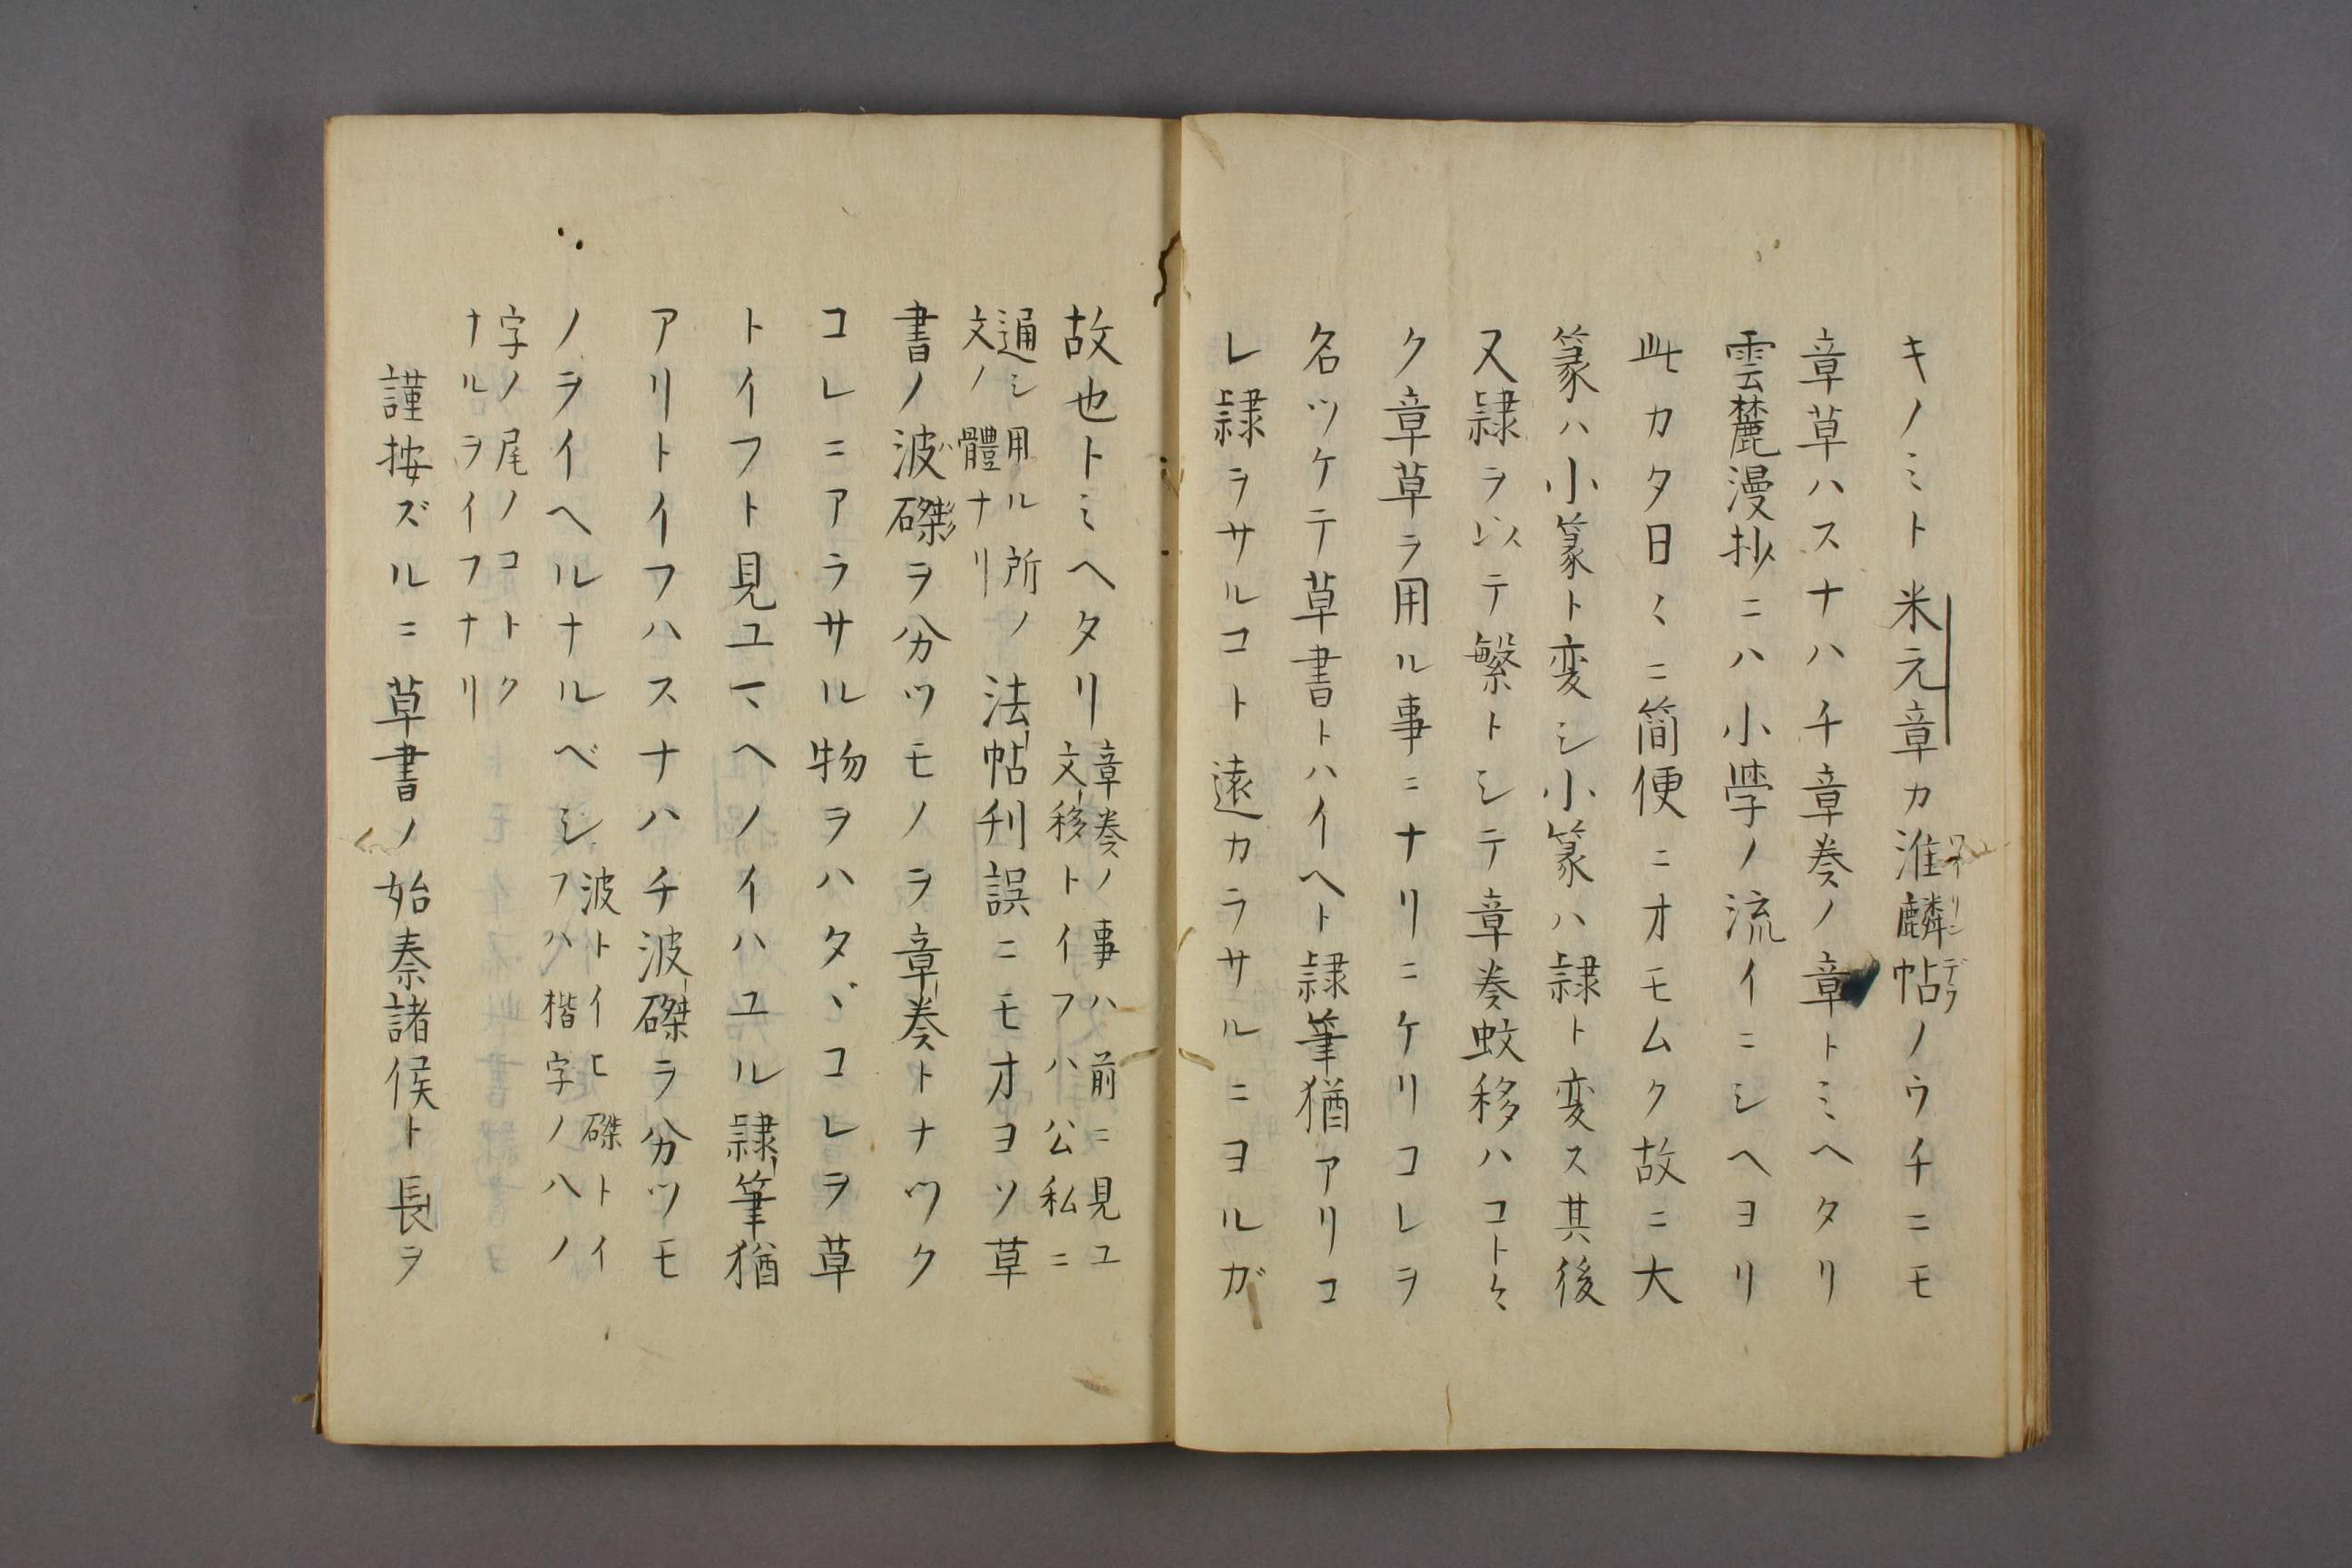 キノミト米元章カ淮麟帖ノウチニモ
章草ハスナハチ章奏ノ章トミヘタリ
雲麓漫抄ニハ小学ノ流イニシヘヨリ
此カタ日〻ニ簡便ニオモムク故ニ大
篆ハ小篆ト変シ小篆ハ隷ト変ス其後
又隷ヲ以テ繁トシテ章奏蚊移ハコト〻
ク章草ヲ用ル事ニナリニケリコレヲ
名ツケテ草書トハイヘト隷筆猶アリコ
レ隷ヲサルコト遠カラサルニヨルガ
故也トミヘタリ
章奏ノ事ハ前ニ見ユ
文移トイフハ公私ニ
通シ用ル所ノ
文ノ體ナリ
法帖刊誤ニモオヨソ草
書ノ波磔ヲ分ツモノヲ章奏トナツク
コレニアラサル物ヲハタヾコレヲ草
トイフト見ユヘノイハユル隷筆猶
アリトイフハスナハチ波磔ヲ分ツモ
ノヲイヘルナルベシ
波トイヒ磔トイ
フハ楷字ノハノ
字ノ尾ノコトク
ナルヲイフナリ
謹按ズルニ草書ノ始秦諸侯ト長ヲ